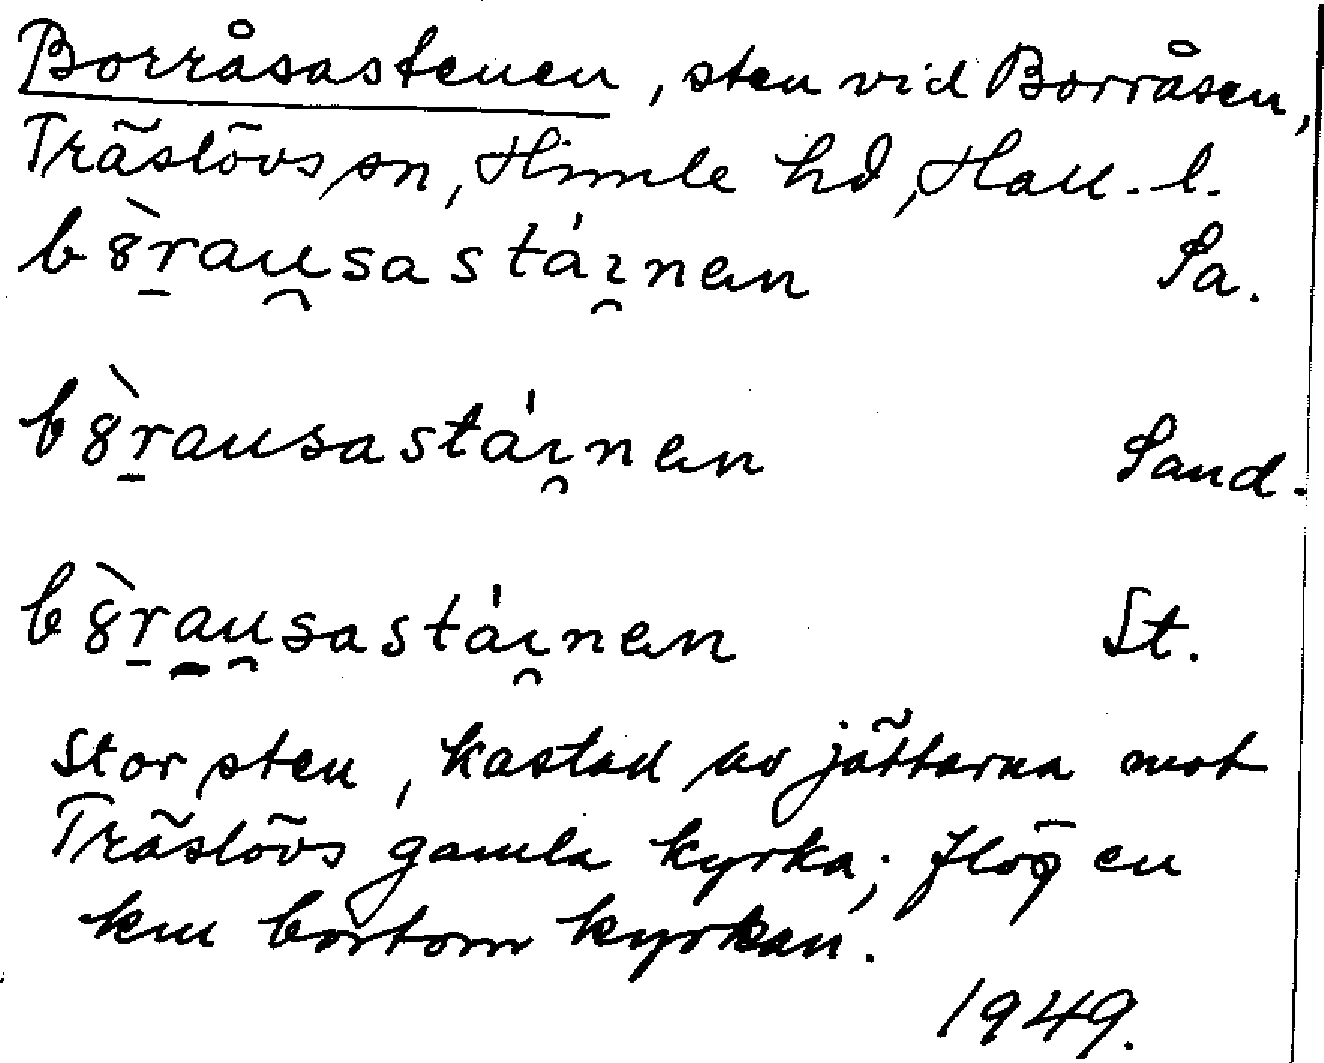 Borråsastenen, sten vid Borråsen,
Träslövs sn, Himle hd, Hall. l.
b8̀r̠au̯sastáı̯nen Sa.
b8̀r̠ausastáı̯nen Sand.
b8̀r̠a̠u̯sastáı̯nen St.
Stor sten, kastad av jättarna mot
Träslövs gamla kyrka; flög en
km bortom kyrkan.
1949.